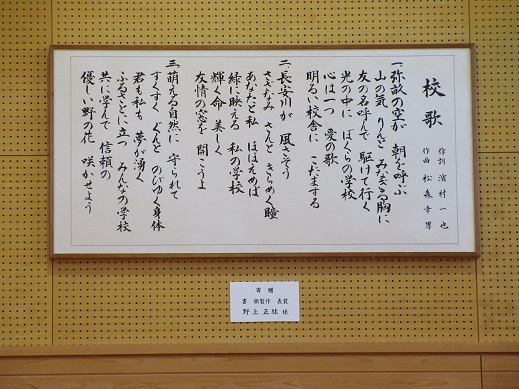 校歌
作詞 濱村一也
作曲 松森幸男
一、弥畝の空が 朝を呼ぶ
山の気 りんと みなぎる胸に
友の名呼んで 駆けて行く
光の中に ぼくらの学校
心は一つ 愛の歌
明るい校舎に こだまする
二、長安川が 風さそう
さざなみ さんと きらめく瞳
あなたと私 ほほえめば
緑に映える 私の学校
輝く命 美しく
友情の窓を 開こうよ
三、萌える自然に 守られて
すくすく ぐんと のびゆく身体
君も私も 夢が湧く
ふるさとに立つ みんなの学校
共に学んで 信頼の
優しい野の花 咲かせよう
寄贈
書 額製作 表装
野上正 様